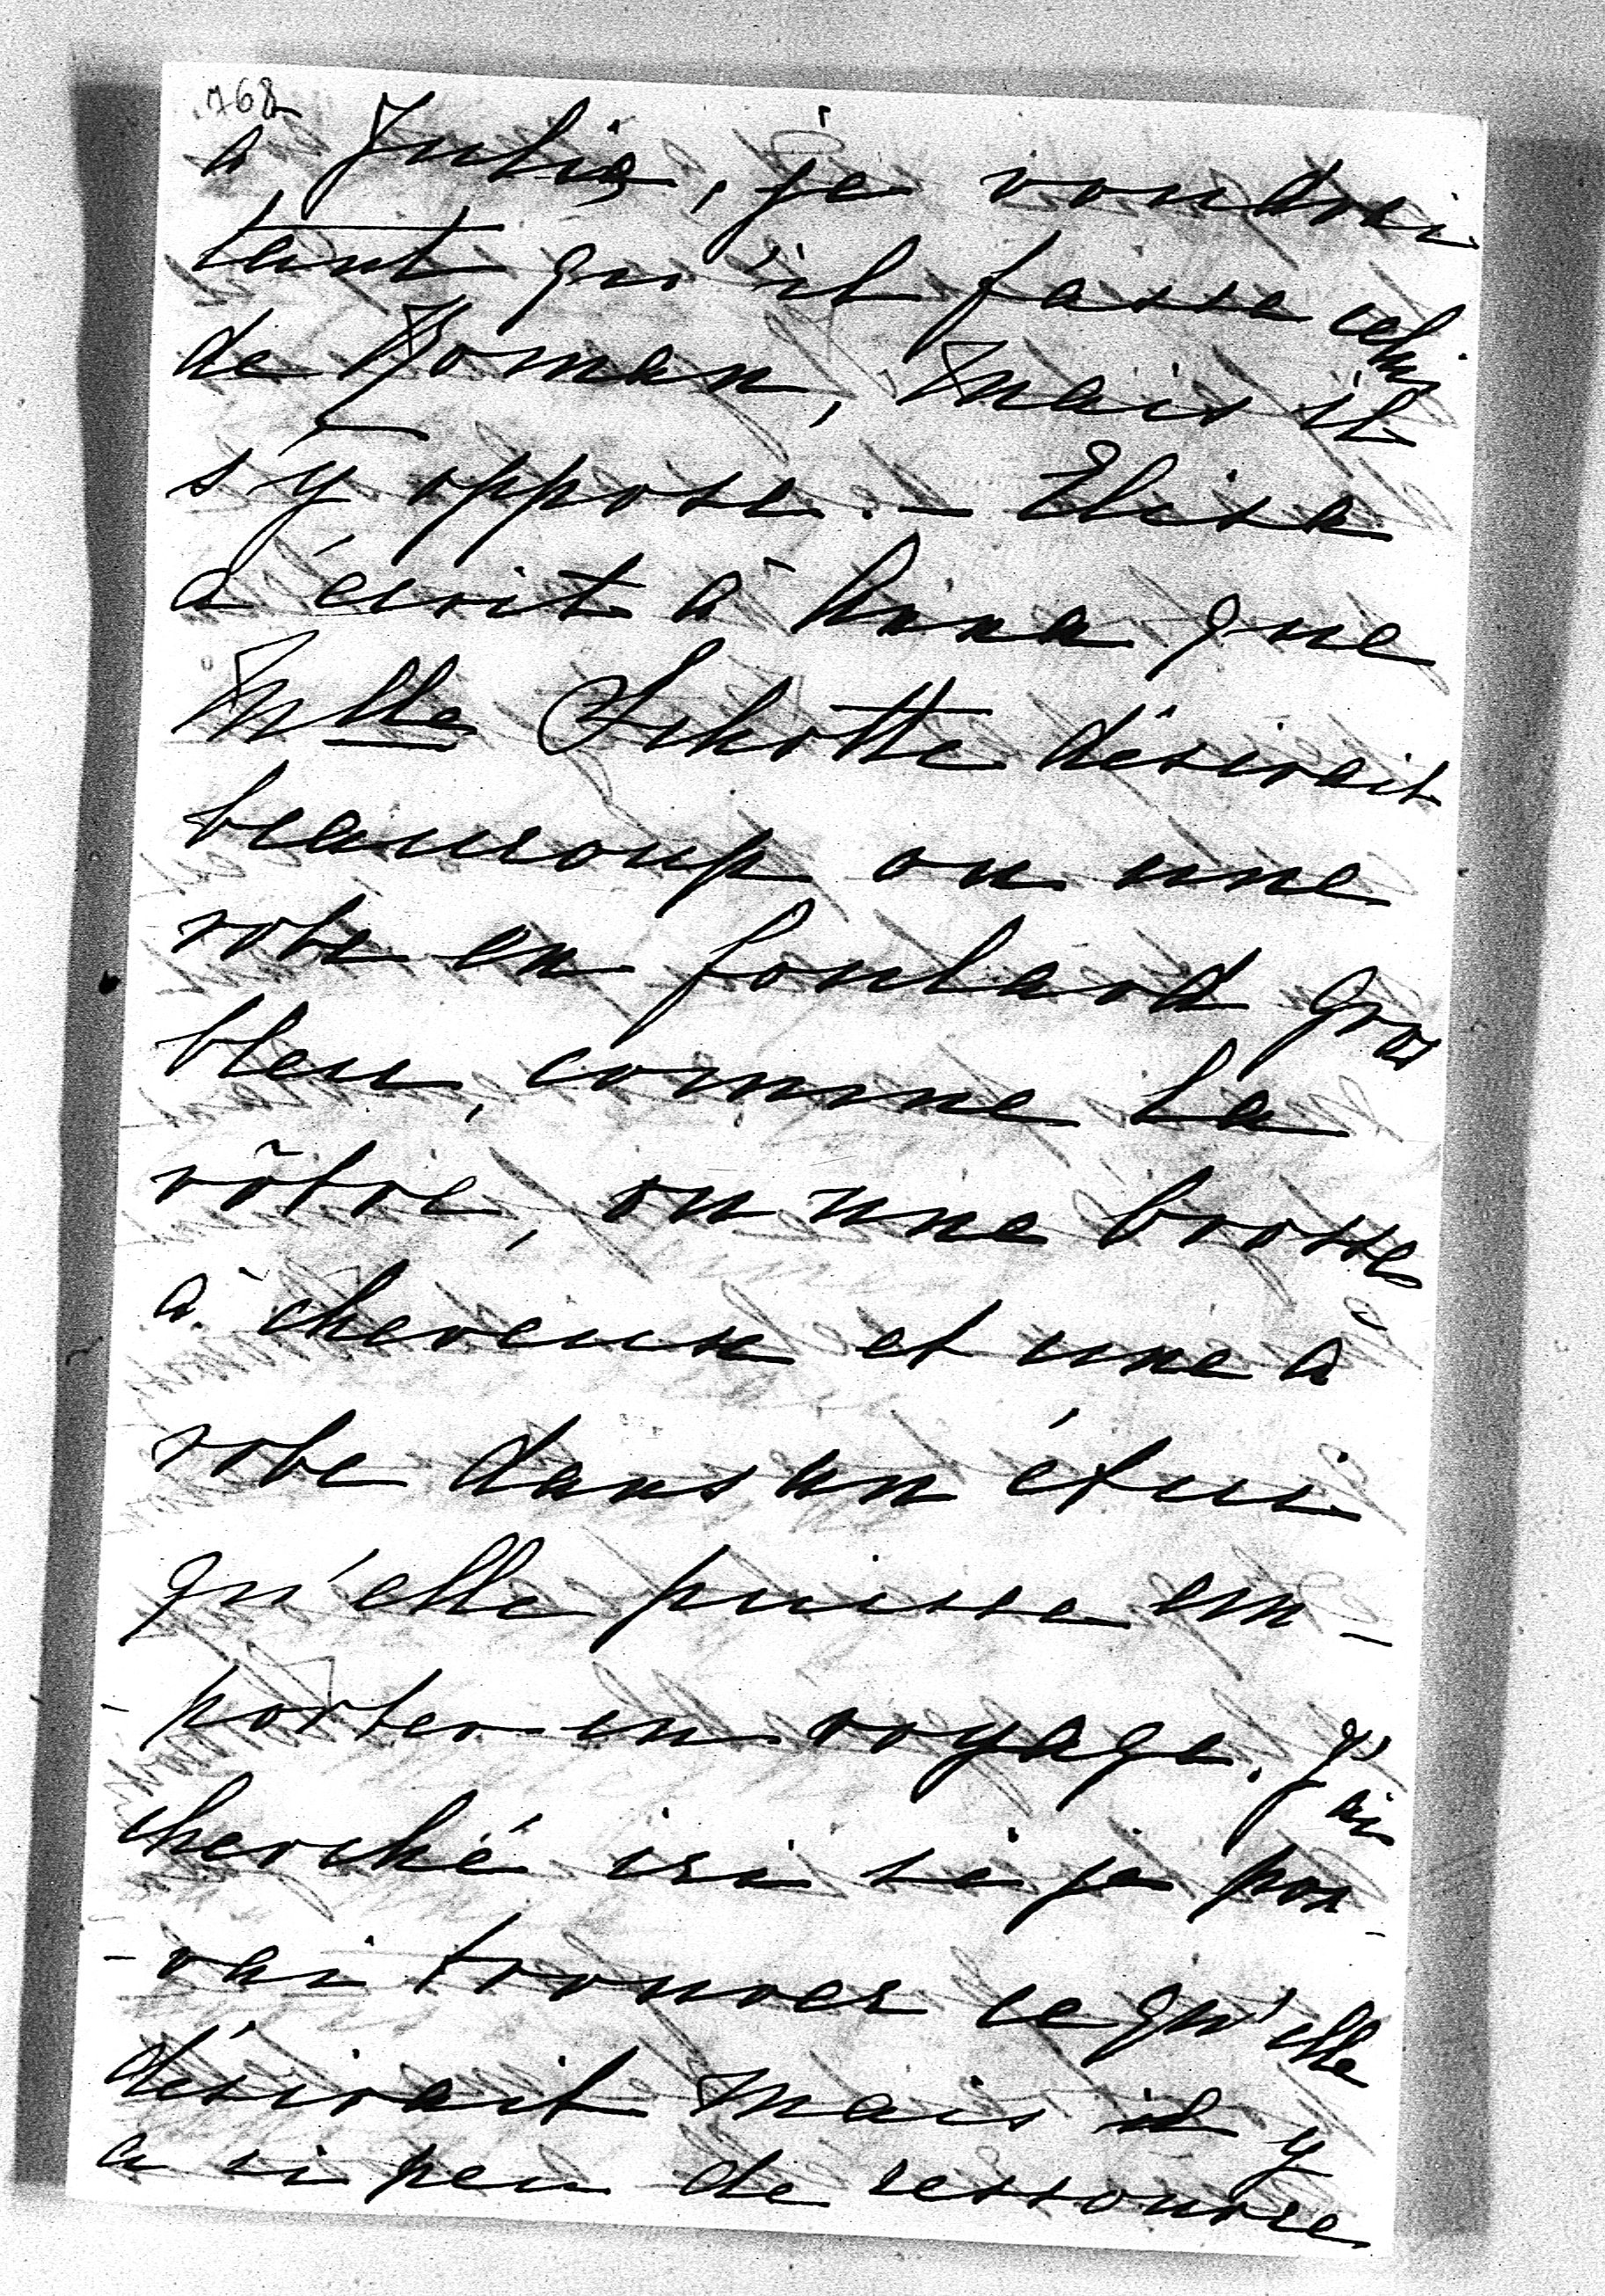 768
à Julie, je voudrai
tant qu'il fasse celui
de Roman, mais il
s'y oppose. — Elisa
a écrit à Anna que
Mlle Schotte désirait
beaucoup ou une
robe en foulard gros
bleu, comme la
vôtre, ou une brosse
à cheveux et une à
robe dans un étui
qu'elle puisse em-
-porter en voyage. J'ai
cherché ici si je pou-
-vai trouver ce qu'elle
désirait mais il y
a si peu de ressource